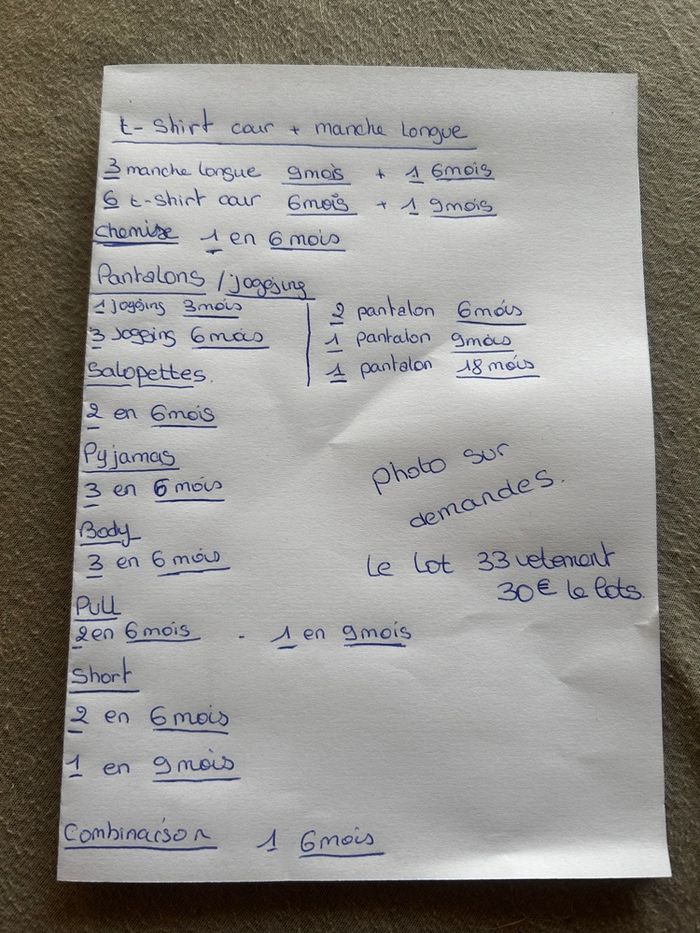 t-shirt cour + manche longue
3 manche longue 9mois + 1 6mois
6 t-shirt cour 6mois + 1 9mois
chemise 1 en 6mois
Pantalons / joggsing
1 joggsing 3mois
3 Joggsing 6mois
2 pantalon 6mois
1 pantalon 9mois
1 pantalon 18mois
Salopettes.
2 en 6mois
Pyjamas
3 en 6mois
Body
3 en 6mois
photo sur
demandes.
Le Lot 33 vetement
30€ le lots.
Pull
2 en 6mois - 1 en 9mois
Short
2 en 6mois
1 en 9mois
Combinaison 1 6mois